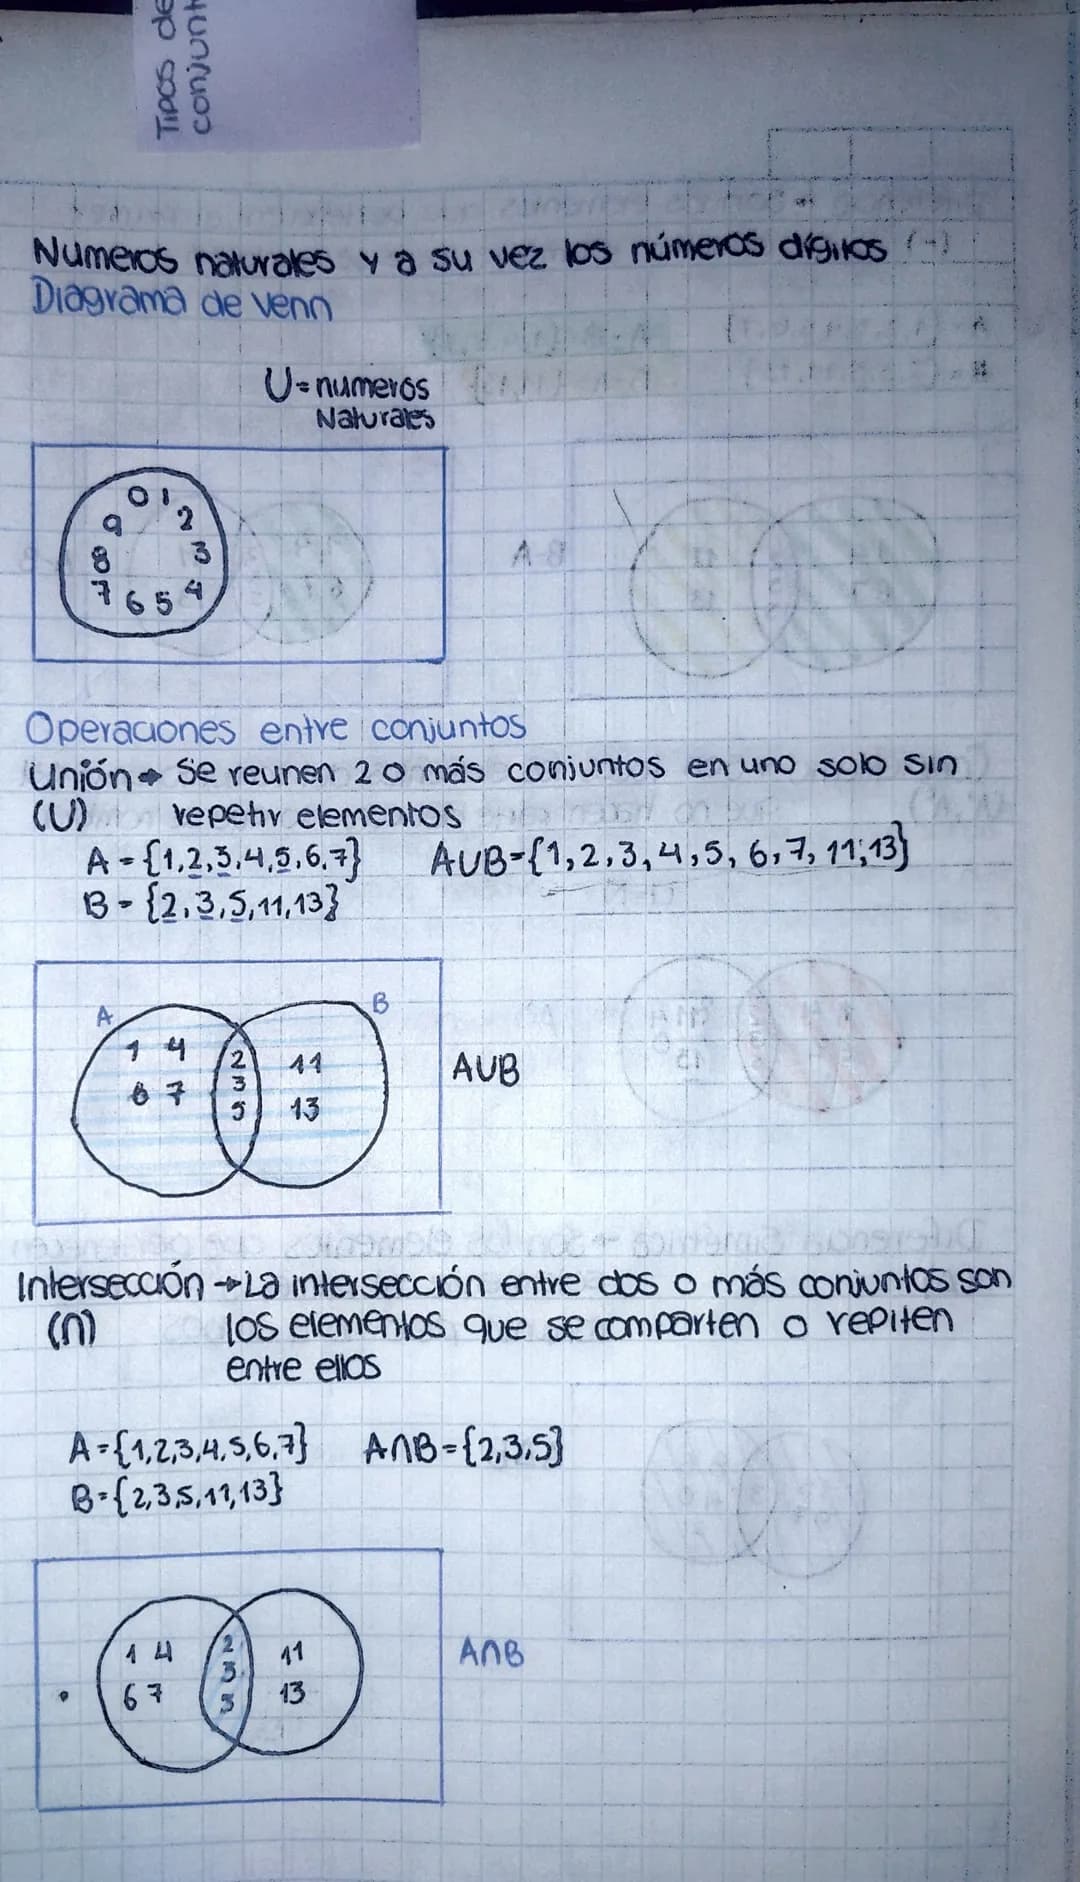 Tipos de
conjunt
Numeros naturales y a su vez los números dígitos
Diagrama de Venn
U=numeros
Naturales
0 1
9 2
8 3
7 6 5 4
Operaciones entre conjuntos
Unión→ Se reunen 2 o más conjuntos en uno solo sin
(U) repetir elementos
A={1,2,3,4,5,6,7} AUB={1,2,3,4,5,6,7,11,13}
B={2,3,5,11,13}
A B
1 4 2 11
6 7 3 13
5
AUB
Intersección→La intersección entre dos o más conjuntos son
(∩) los elementos que se comparten o repiten
entre ellos
A={1,2,3,4,5,6,7} A∩B={2,3,5}
B={2,3,5,11,13}
1 4 2 11
6 7 3 13
5
A∩B